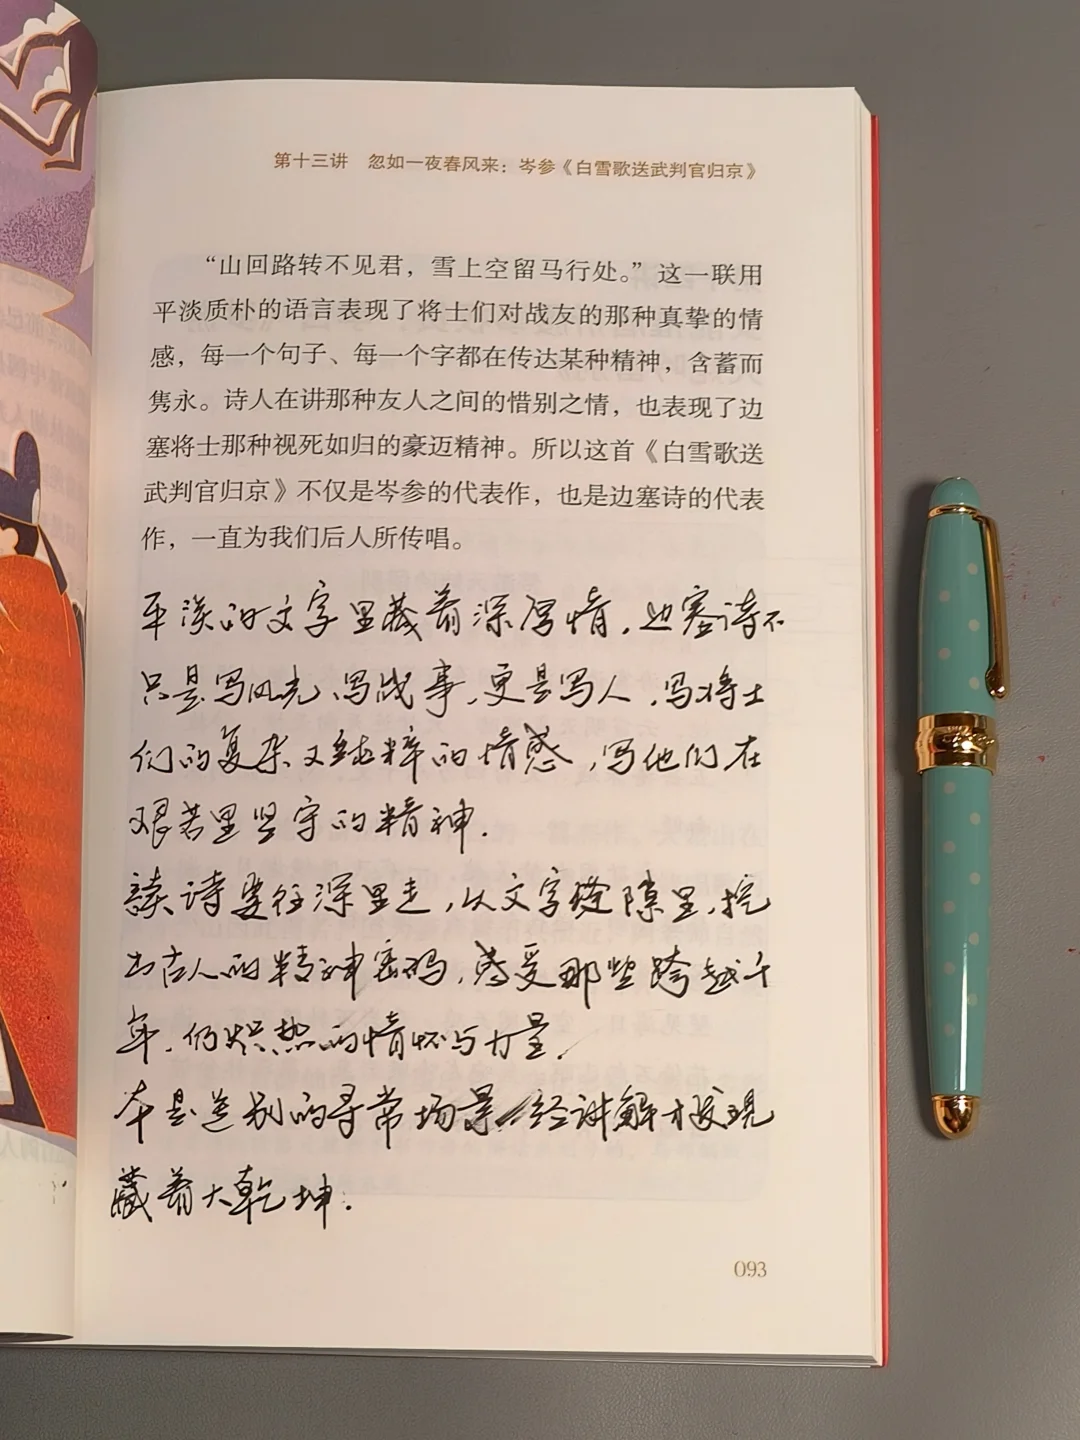 第十三讲 忽如一夜春风来：岑参《白雪歌送武判官归京》
“山回路转不见君，雪上空留马行处。”这一联用
平淡质朴的语言表现了将士们对战友的那种真挚的情
感，每一个句子、每一个字都在传达某种精神，含蓄而
隽永。诗人在讲那种友人之间的惜别之情，也表现了边
塞将士那种视死如归的豪迈精神。所以这首《白雪歌送
武判官归京》不仅是岑参的代表作，也是边塞诗的代表
作，一直为我们后人所传唱。
平淡的文字里藏着深厚情，边塞诗不
只是写风光、写战事，更是写人，写将士
们的复杂又纯粹的情感，写他们在
艰苦里坚守的精神.
読诗要往深里走，从文字缝隙里，挖
出古人的精神密码，感受那些跨越千
年，仍炽热的情怀与力量.
本是送别的寻常场景，经讲解才发现
藏着大乾坤.
093